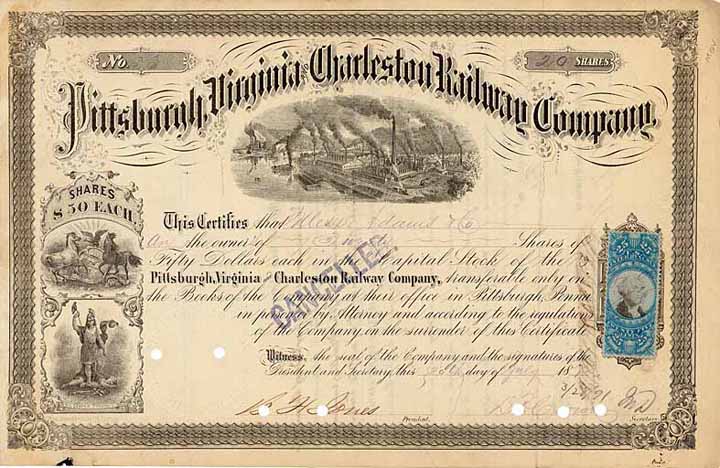 No.
20 SHARES
Pittsburgh, Virginia and Charleston Railway Company.
SHARES
$50 EACH.
This Certifies that Messrs Adams & Co
are the owner of Twenty Shares of
Fifty Dollars each in the Capital Stock of the
Pittsburgh, Virginia and Charleston Railway Company, transferable only on
the Books of the Company at their office in Pittsburgh, Penna
in person or by Attorney and according to the regulations
of the Company on the surrender of this Certificate
CANCELLED
Witness, the seal of the Company and the signatures of the
President and Secretary, this day of July 187
B. F. Jones
President.
Secretary.
25